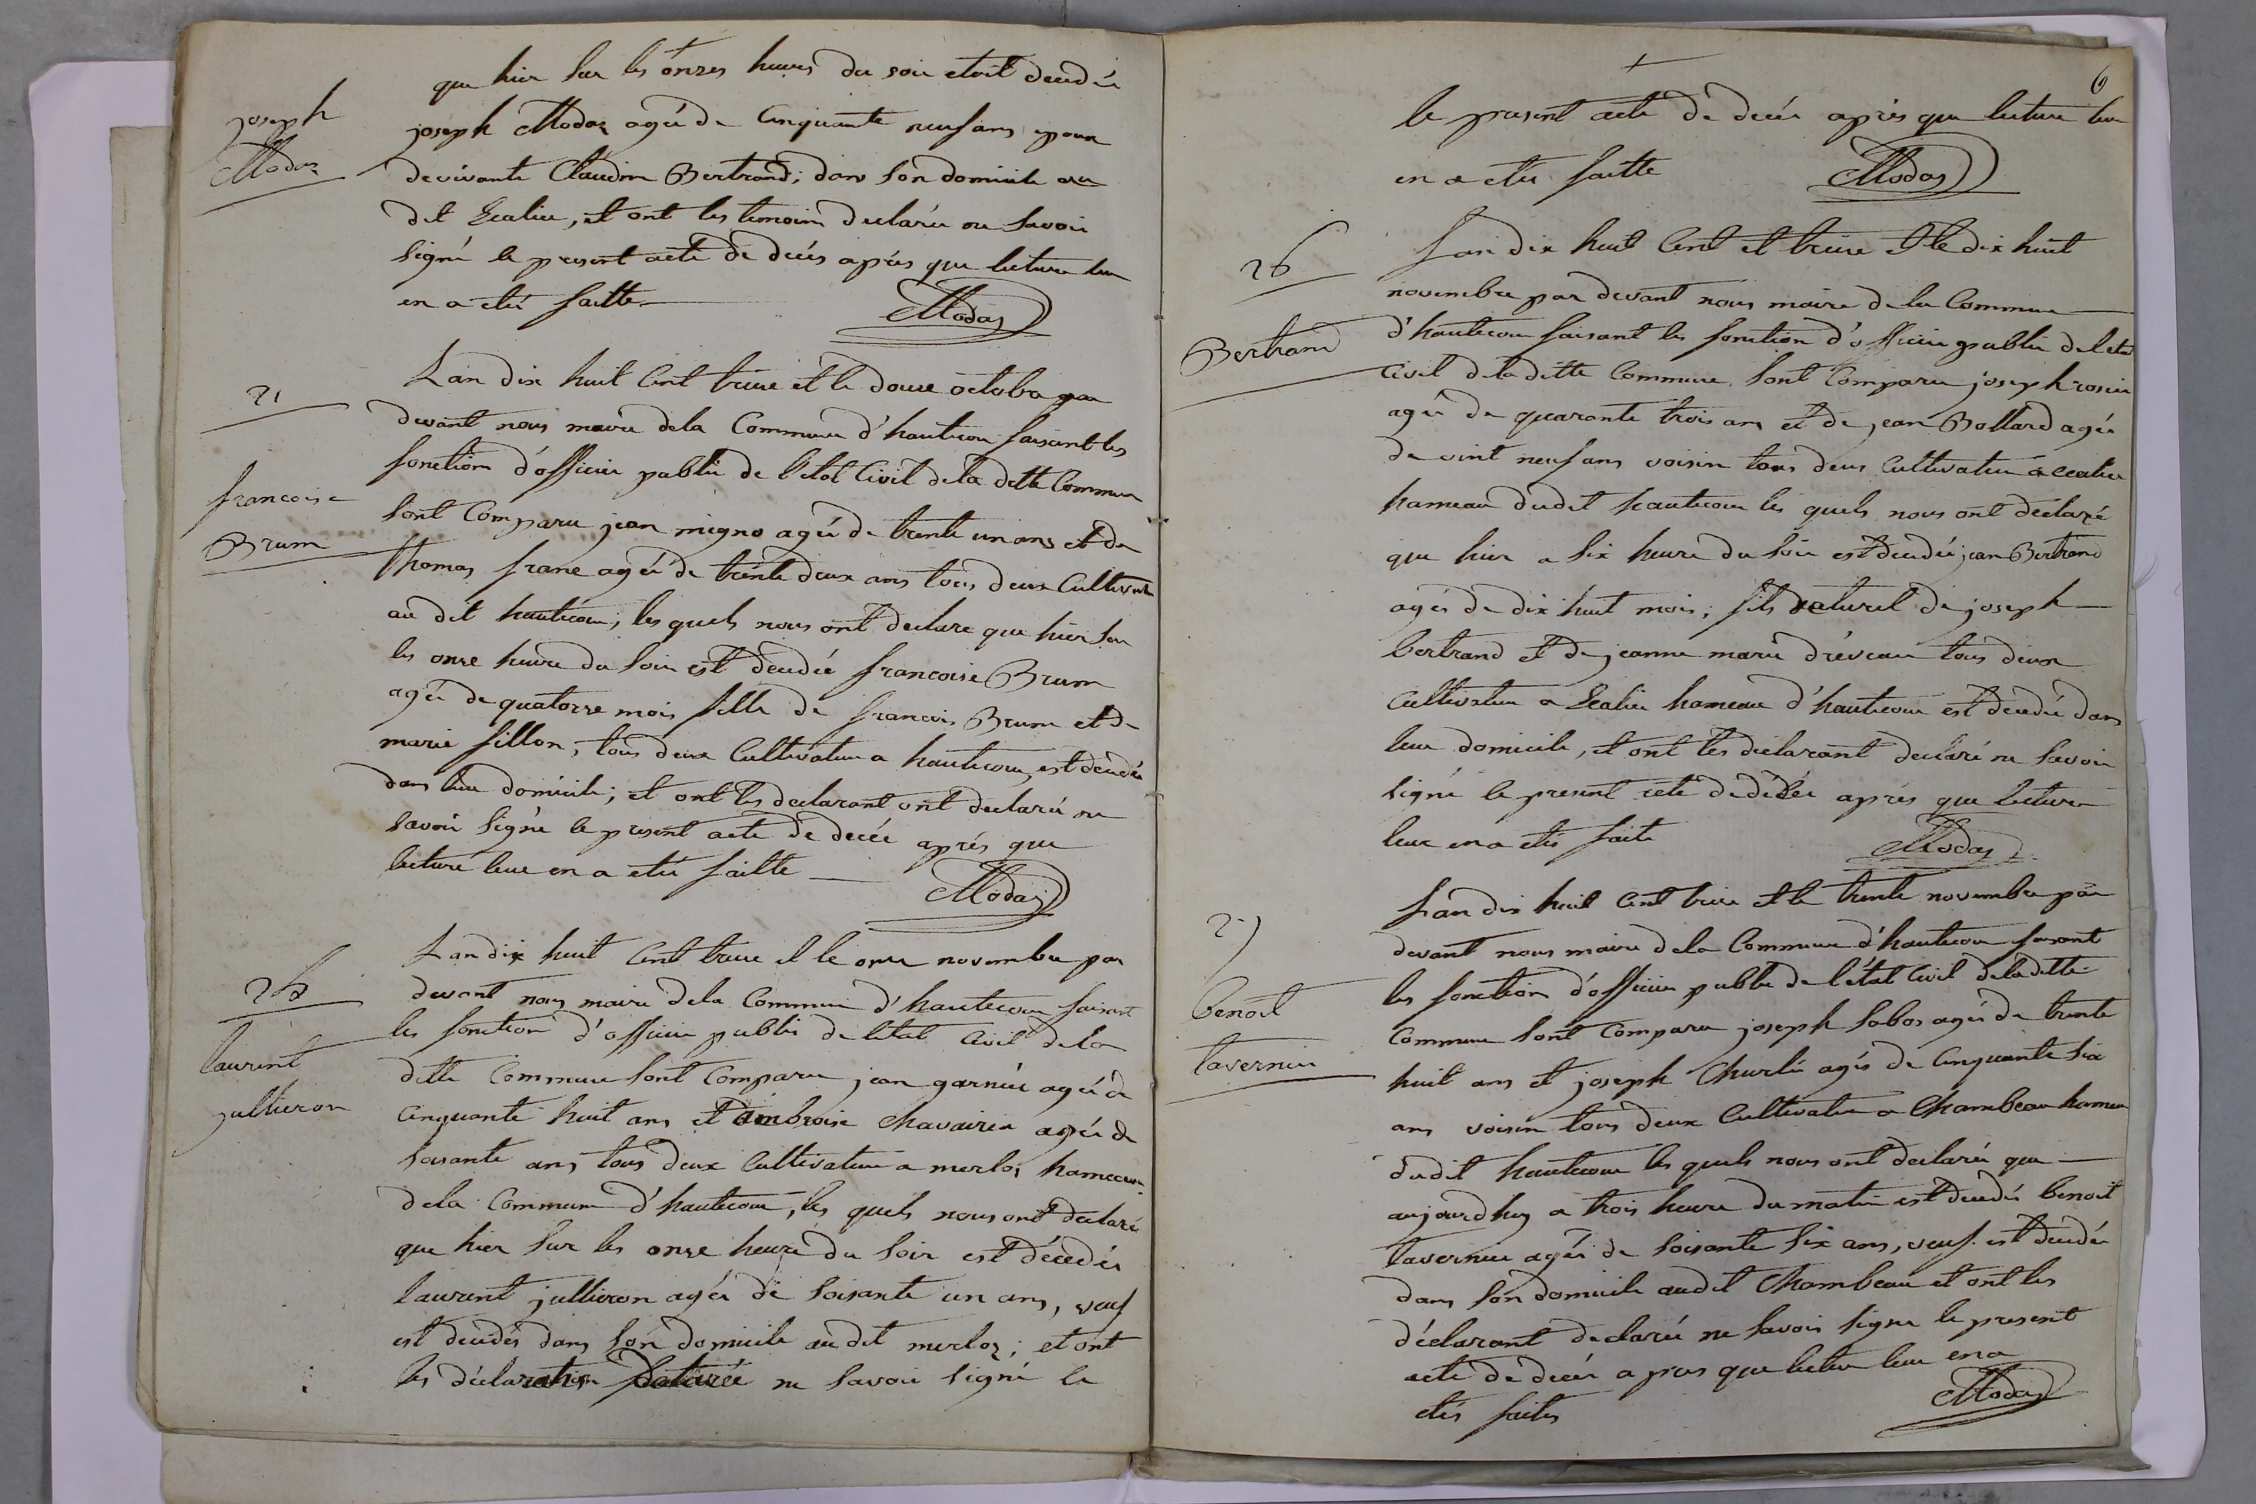 que hier sur les onzes heures du soir etoit decedée
joseph
joseph Modaz agée de Cinquante neuf ans epoux
Modaz
de vivante Claudine Bertrand; dans son domicile au
dit Ecalier, et ont les temoins declarée ne savoir
signé le present acte de decés aprés que lecture leur
en a eté faitte
Modaz
21
Lan dix huit Cent treize et le douze octobre par
devant nous maire dela Commune d'hautecour faisant les
fonction d'officier public de l'etat Civil dela ditte Commune
francoise
Brum
sont Comparu jean migno agée de trente un ans et de
Thomas frane agée de trente deux ans tous deux Cultivateur
au dit hautecour, les quels nous ont declare que hier sur
les onze heure du soir est decedée francoise Brum
agée de quatorze mois fille de francois Brum et de
marie fillon, tous deux Cultivateur a hautecour, est decedée
dans leur domicile; et ont les declarant ont declarée ne
savoir signé le present acte de decée aprés que
lecture leur en a eté faitte
Modaz
Lan dix huit Cent treize et le onze novembre par
devant nous maire dela Commune d'hautecour faisant
les fonction d'officier public de letat Civil dela
laurent
jullieron
ditte Commune sont Comparu jean garnier agée de
Cinquante huit ans et dambroise Chavairier agée de
soisante ans tous deux Cultivateur a merloz hameau
dela Commune d'hautecour, les quels nous ont declaré
que hier sur les onze heure du soir est décedée
laurent jullieron agée de soisante un ans, veuf
est decedés dans son domicile audit merloz; et ont
les déclaration declarée ne savoir signé le
6
le present acte de decée aprés que lecture leur
en a eté faitte
Modaz
26
Lan dix huit Cent et treize et le dix huit
novembre par devant nous maire dela Commune
Bertrand
d'hautecour faisant les fonction d'officier public de letat
Civil dela ditte Commune sont Comparu joseph rosier
agée de quarante trois ans et de jean Bollard agée
de vint neuf ans voisin tous deux Cultivateur a ecalier
hameau dudit hautecour les quels nous ont déclaré
que hier a six heure du soir est decedée jean Bertrand
agés de dix huit mois; fils naturel de joseph
bertrand et de jeanne marie dréveau tous deux
Cultivateur a Ecalier hameau d'hautecour est decedée dans
leur domicile, et ont les déclarant declaré ne savoir
signé le present acte de dédée aprés que lecture
leur en a étés faite
Modaz
27
Lan dix huit Cent treize et le trente novembre par
devant nous maire dela Commune d'hautecour faisant
les fonction d'officier public de l'état Civil dela ditte
benoit
tavernier
Commune sont Comparu joseph sobos agée de trente
huit ans et joseph Churlin agés de Cinquante six
ans voisin tous deux Cultivateur a Chambeau hameau
dudit hautecour les quels nous ont declarée que
aujourdhuy a trois heure du matin est decedés benoit
tavernier agée de soisante six ans, veuf est decedée
dans son domicile audit Chambeau et ont les
déclarant declarée ne savoir signe le present
acte de decée apres que lecture leur en a
étés faites
Modaz